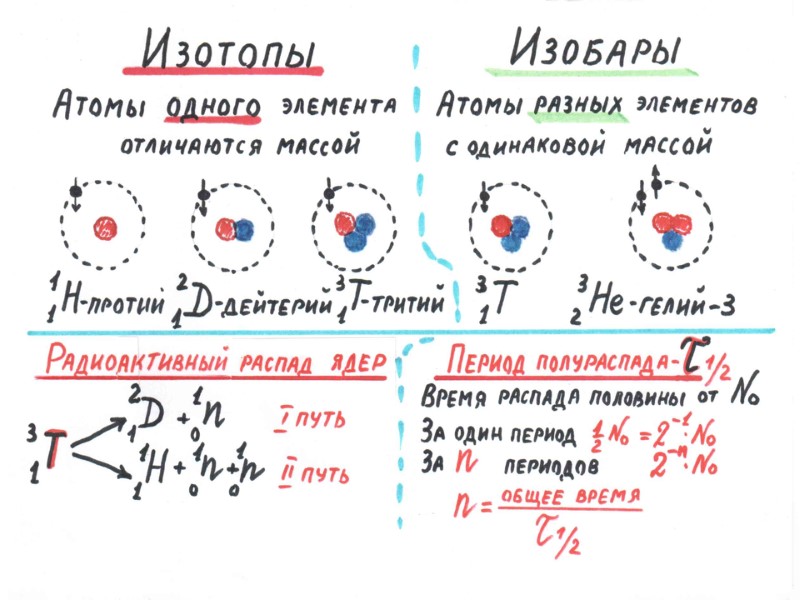 ИЗОТОПЫ
АТОМЫ ОДНОГО ЭЛЕМЕНТА
ОТЛИЧАЮТСЯ МАССОЙ
¹₁H-ПРОТИЙ ²₁D-ДЕЙТЕРИЙ ³₁T-ТРИТИЙ
ИЗОБАРЫ
АТОМЫ РАЗНЫХ ЭЛЕМЕНТОВ
С ОДИНАКОВОЙ МАССОЙ
³₁T ³₂He-ГЕЛИЙ-3
РАДИОАКТИВНЫЙ РАСПАД ЯДЕР
³₁T
²₁D + ¹₀n I ПУТЬ
¹₁H + ¹₀n + ¹₀n II ПУТЬ
ПЕРИОД ПОЛУРАСПАДА - τ 1/2
ВРЕМЯ РАСПАДА ПОЛОВИНЫ ОТ N₀
ЗА ОДИН ПЕРИОД 1/2 N₀ = 2⁻¹·N₀
ЗА n ПЕРИОДОВ 2⁻ⁿ·N₀
n = ОБЩЕЕ ВРЕМЯ
τ 1/2